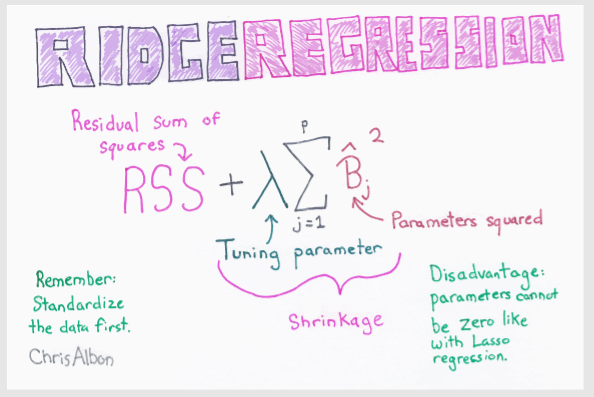 RIDGE REGRESSION
Residual sum of
squares
RSS + λ Σ B̂j²
p
j=1
Parameters squared
Tuning parameter
Shrinkage
Remember:
Standardize
the data first.
ChrisAlbon
Disadvantage:
parameters cannot
be zero like
with Lasso
regression.